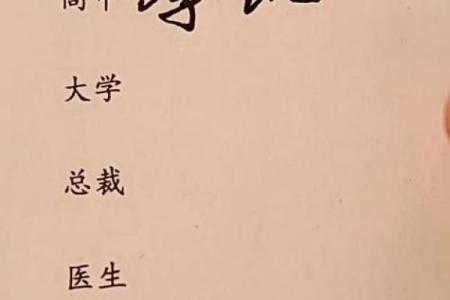 高中
大学
总裁
医生